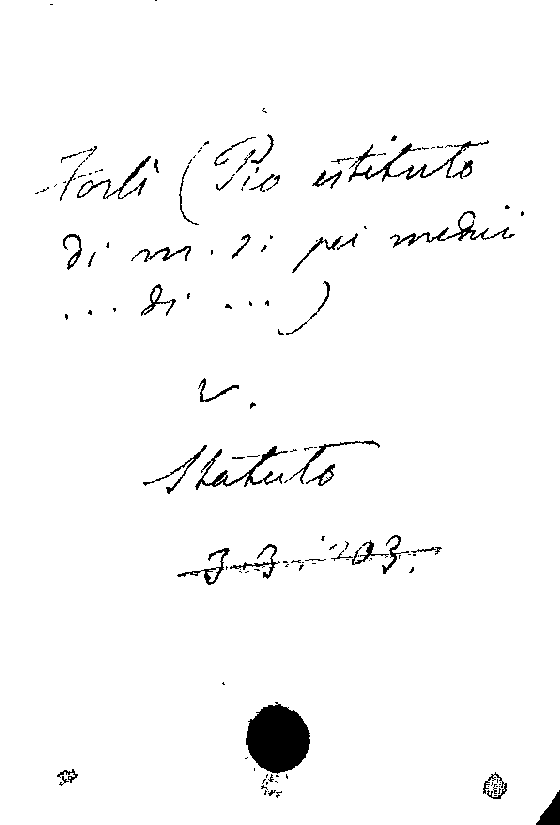 Forlì (Pio istituto
di m. s. pei medici
... di ...)
v.
Statuto
3.3. 203.